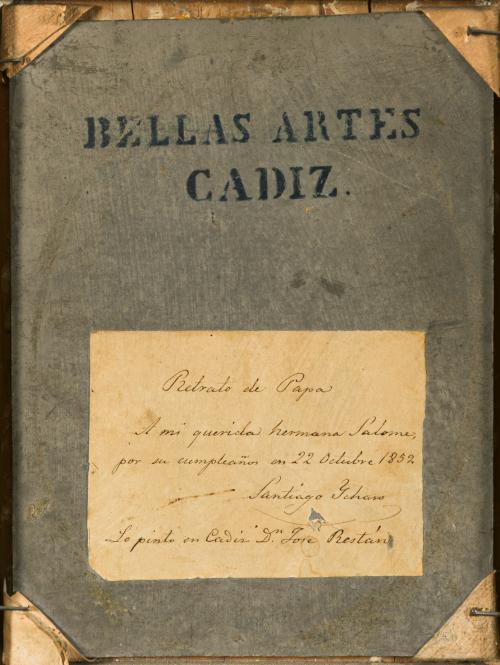 BELLAS ARTES
CADIZ.
Retrato de Papa
A mi querida hermana Salome,
por su cumpleaños en 22 Octubre 1852
Santiago Ycharo
Lo pintó en Cadiz Dn. Jose Restán